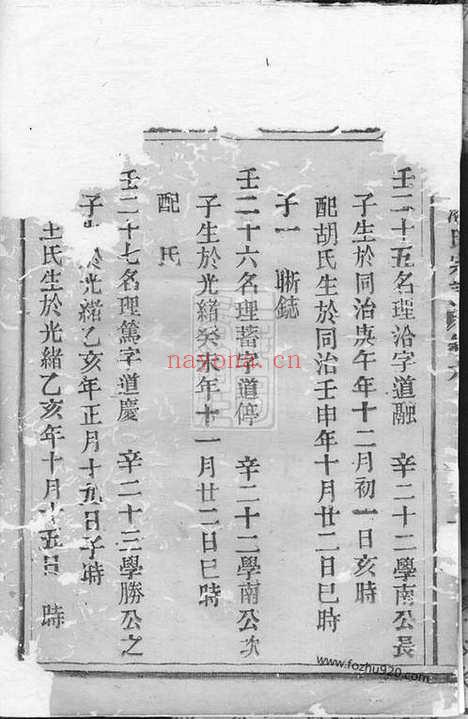 壬二十五名理洽字道融 辛二十二學南公長
子生於同治庚午年十二月初一日亥時
配胡氏生於同治壬申年十月廿二日巳時
子一
壬二十六名理蓄字道停 辛二十二學南公次
子生於光緒癸未年十一月廿二日巳時
配 氏
壬二十七名理篤字道慶 辛二十三學勝公之
子 於光緒乙亥年正月十九日子時
氏生於光緒乙亥年十月十五日 時
nayona.cn
www.fozhu920.com